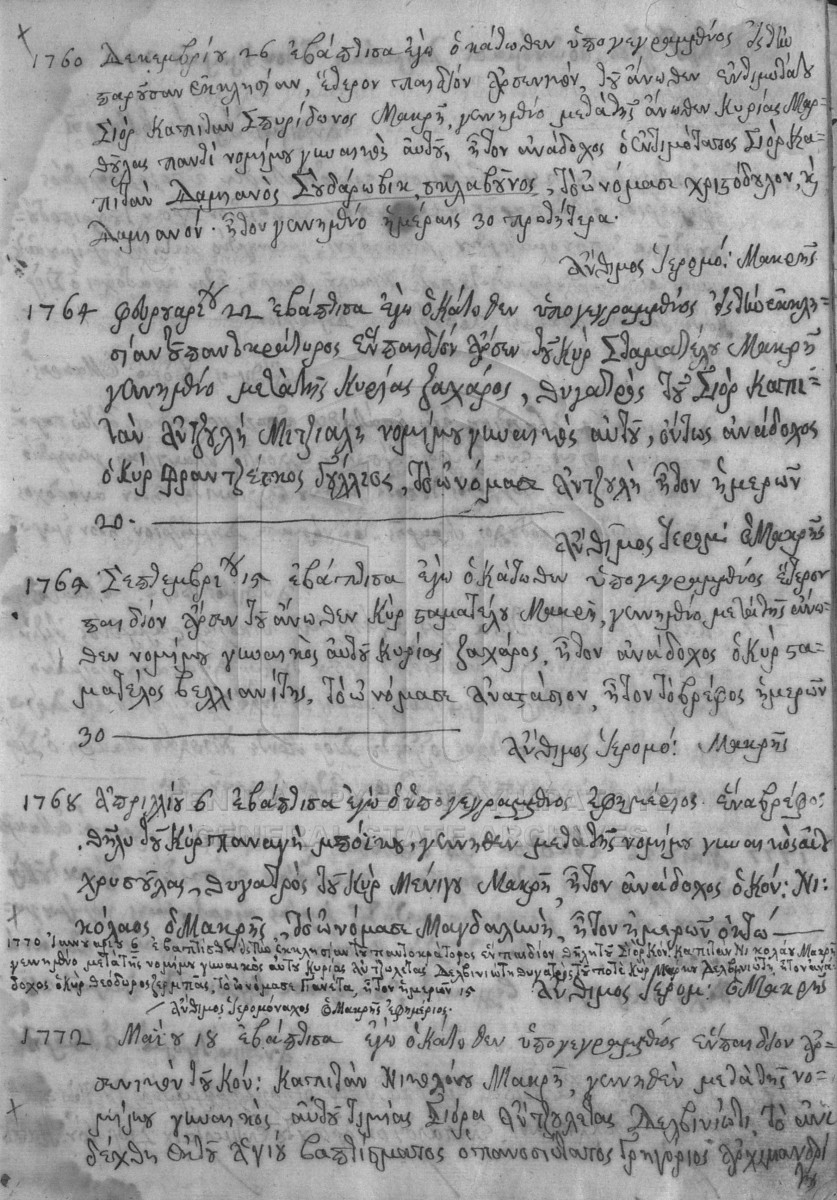 1760 Δεκεμβρίου 26 ἐβάπτισα ἐγὼ ὁ κάτωθεν ὑπογεγραμμένος εἰς τὴν
παροῦσαν ἐκκλησίαν, ἕτερον παιδίον ἀρσενικόν, τοῦ ἄνωθεν ἐντιμωτάτου
Σιὸρ Καπιτὰν Σπυρίδωνος Μακρῆ, γεννημένο μετὰ τῆς ἄνωθεν Κυρίας Μαρ-
γούλας νομίμου γυναικὸς αὐτοῦ, ἦτον ἀνάδοχος ὁ ἐντιμότατος Σιὸρ Κα-
πιτὰν Δαμιανὸς Σουδάροβικ, σκλαβοῦνος, τὸ ὠνόμασε χριστόδουλον, κὶ
Δαμιανόν. ἦτον γεννημένο ἡμέραις 30 προτήτερα.
Ἄνθιμος Ἱερομό: Μακρῆς
1764 φευρουαρίου 22 ἐβάπτισα ἐγὼ ὁ Κάτωθεν ὑπογεγραμμένος εἰς τὴν ἐκκλη-
σίαν τοῦ παντοκράτορος ἓν παιδίον ἄρσεν τοῦ Κὺρ Σταματέλου Μακρῆ
γεννημένο μετὰ τῆς Κυρίας ζαχάρος, θυγατρὸς τοῦ Σιὸρ Καπι-
τὰν Ἀντζουλῆ Μιτζιάλη νομίμου γυναικὸς αὐτοῦ, ὄντως ἀνάδοχος
ὁ Κὺρ Φραντζέσκος, τὸ ὠνόμασε Ἀντζουλῆ ἦτον ἡμερῶν
20.
Ἄνθιμος Ἱερομ: ὁ Μακρῆς
Σεπτεμβρίου 15 ἐβάπτισα ἐγὼ ὁ Κάτωθεν ὑπογεγραμμένος ἕτερον
παιδίον ἄρσεν τοῦ ἄνωθεν Κὺρ σταματέλου Μακρῆ, γεννημένο μετὰ τῆς ἄνω-
θεν νομίμου γυναικὸς αὐτοῦ Κυρίας ζαχάρος, ἦτον ἀνάδοχος ὁ Κὺρ στα-
ματέλος βελλιανίτης, τὸ ὠνόμασε Ἀναστάσιον, ἦτον τὸ βρέφος ἡμερῶν
30
Ἄνθιμος Ἱερομό: Μακρῆς
1768 Ἀπριλλίου 6 ἐβάπτισα ἐγὼ ὁ ὑπογεγραμμένος ἐφημέριος ἕνα βρέφος
θῆλυ τοῦ Κὺρ Παναγῆ, γεννηθὲν μετὰ τῆς νομίμου γυναικὸς αὐτοῦ
χρυσούλας, θυγατρὸς τοῦ Κὺρ Μένιγου Μακρῆ, ἦτον ἀνάδοχος ὁ Κόν: Νι-
κόλαος ὁ Μακρῆς, τὸ ὠνόμασε Μαγδαληνή, ἦτον ἡμερῶν ὀκτώ
1770 Ἰαννουαρίου 6 ἐβαπτίσθη εἰς τὴν ἐκκλησίαν τοῦ παντοκράτορος ἓν παιδίον θῆλυ τοῦ Σιὸρ Κον: Καπιτὰν Νικολάου Μακρῆ
γεννημένο μετὰ τῆς νομίμου γυναικὸς αὐτοῦ Κυρίας Ἀντζολέτας Δελβινιώτη θυγατρὸς τοῦ ποτὲ Κὺρ Μαρίνου Δελβινιώτη, ἦτον ἀνά-
δοχος ὁ Κὺρ Θεόδωρος, τὸ ὠνόμασε Γιανέτα, ἦτον ἡμερῶν 15
Ἄνθιμος Ἱερομ: ὁ Μακρῆς
Ἄνθιμος Ἱερομόναχος ὁ Μακρῆς ἐφημέριος.
1772 Μαΐου 18 ἐβάπτισα ἐγὼ ὁ Κάτωθεν ὑπογεγραμμένος ἓν παιδίον ἀρ-
σενικὸν τοῦ Κόν: Καπιτὰν Νικολάου Μακρῆ, γεννηθὲν μετὰ τῆς νο-
μίμου γυναικὸς αὐτοῦ τιμίας Σιόρα Ἀντζουλέτας Δελβινιώτι, τὸ ἀνε-
δέχθη ἐκ τοῦ ἁγίου βαπτίσματος ὁ πανοσιώτατος Γρηγόριος ἀρχιμανδρί
GENERAL STATE ARCHIVES